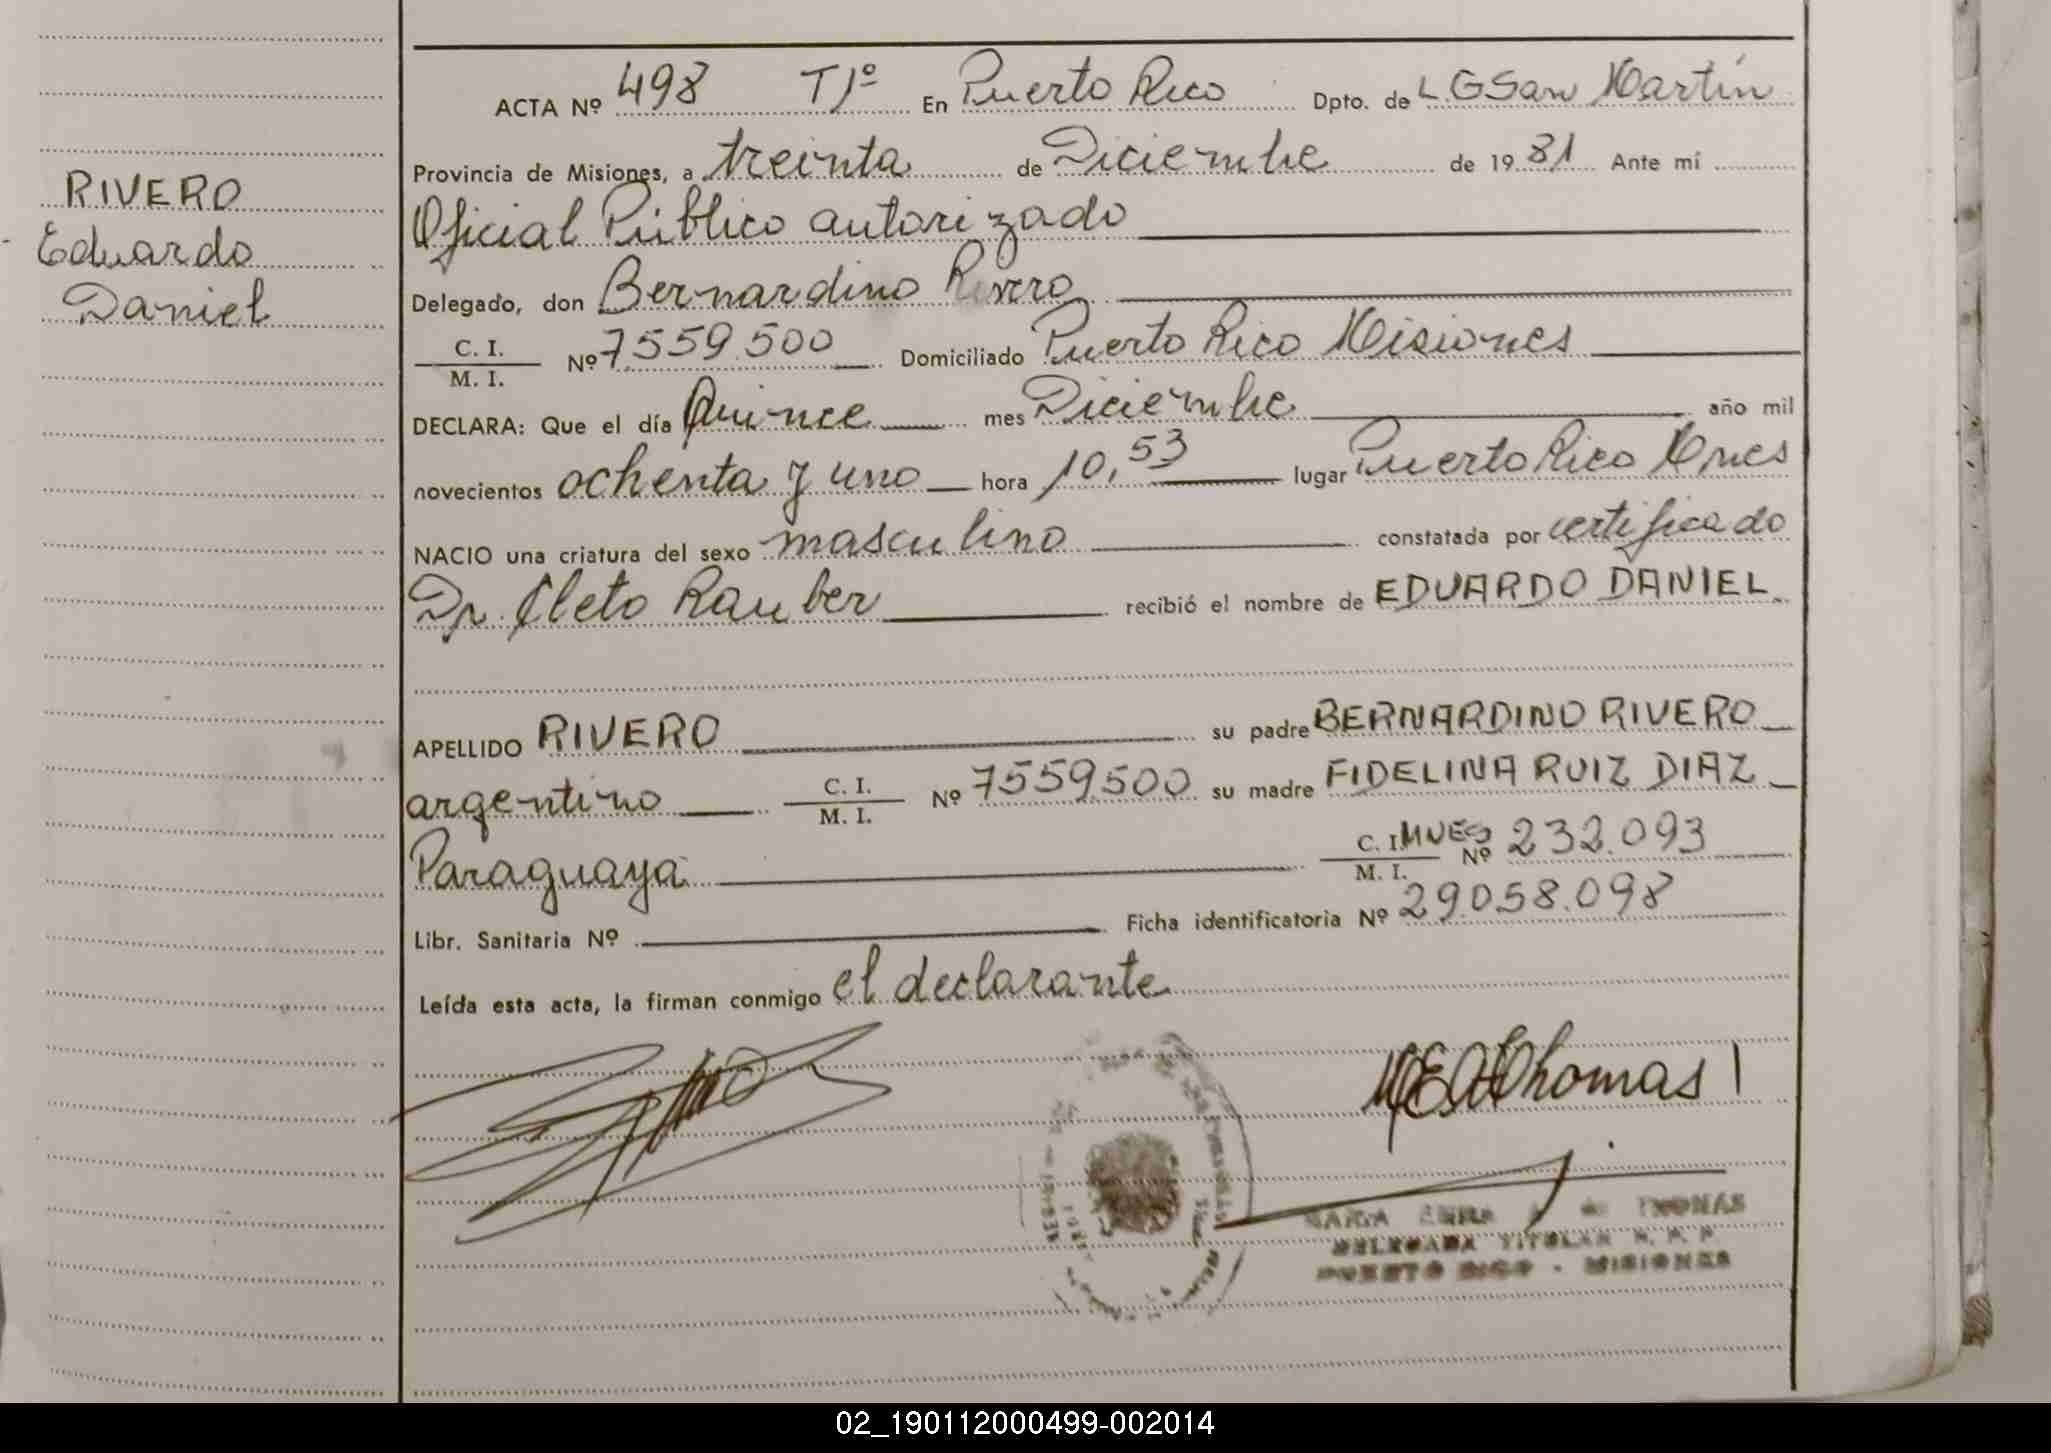 RIVERO
Eduardo
Daniel
ACTA Nº 498 Tº 1º En Puerto Rico Dpto. de L G San Martín
Provincia de Misiones, a treinta de Diciembre de 1981 Ante mí
Oficial Público autorizado
Delegado, don Bernardino Rivero
C. I.
M. I. Nº 7559.500 Domiciliado Puerto Rico Misiones
DECLARA: Que el día Quince mes Diciembre año mil
novecientos ochenta y uno hora 10,53 lugar Puerto Rico Mnes
NACIO una criatura del sexo masculino constatada por certificado
Dr. Cleto Rauber recibió el nombre de EDUARDO DANIEL
APELLIDO RIVERO su padre BERNARDINO RIVERO
argentino C. I.
M. I. Nº 7559.500 su madre FIDELINA RUIZ DIAZ
Paraguaya C. I. MNES
M. I. Nº 232.093
Libr. Sanitaria Nº Ficha identificatoria Nº 29.058.098
Leída esta acta, la firman conmigo el declarante
Thomas
MARIA THOMAS
DELEGADA TITULAR R. P. P.
PUERTO RICO - MISIONES
02_190112000499-002014